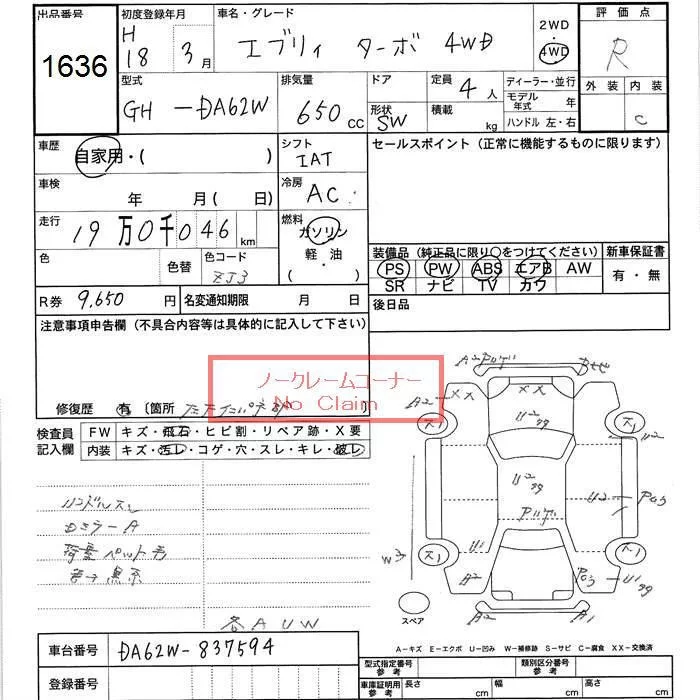 出品番号
1636
初度登録年月
H 18 3月
車名・グレード
エブリィ ターボ 4WD
2WD
・
4WD
評価点
R
外装 内装
C
型式
GH-DA62W
排気量
650 CC
ドア
形状
SW
定員
4人
積載
kg
ディーラー・並行
モデル年式 年
ハンドル 左・右
車歴
自家用・( )
シフト
IAT
セールスポイント (正常に機能するものに限ります)
車検
年 月( 日)
冷房
AC
走行
19万0千046km
燃料
ガソリン
軽・油
( ・ )
色
色替
色コード
ZJ3
装備品(純正品に限り○をつけてください)
新車保証書
PS PW ABS エアB AW
SR ナビ TV カワ
有・無
R券 9,650円
名変通知期限 月 日
後日品
注意事項申告欄(不具合内容等は具体的に記入して下さい)
ノークレームコーナー
No Claim
修復歴 有 〔箇所
検査員
記入欄
FW キズ・飛石・ヒビ割・リペア跡・X要
内装 キズ・汚レ・コゲ・穴・スレ・キレ・破レ
ハンドルスレ
DミラーA
各AUW
A2
XX
XX
U2
U2
99
U2
P03
W3
U1
A2
P03
U1
99
A2
A1
スペア
A-キズ E-エクボ U-凹み W-補修跡 S-サビ C-腐食 XX-交換済
車台番号
DA62W-837594
登録番号
型式指定番号
参考
類別区分番号
参考
車庫証明用
参考
長さ cm 幅 cm 高さ cm